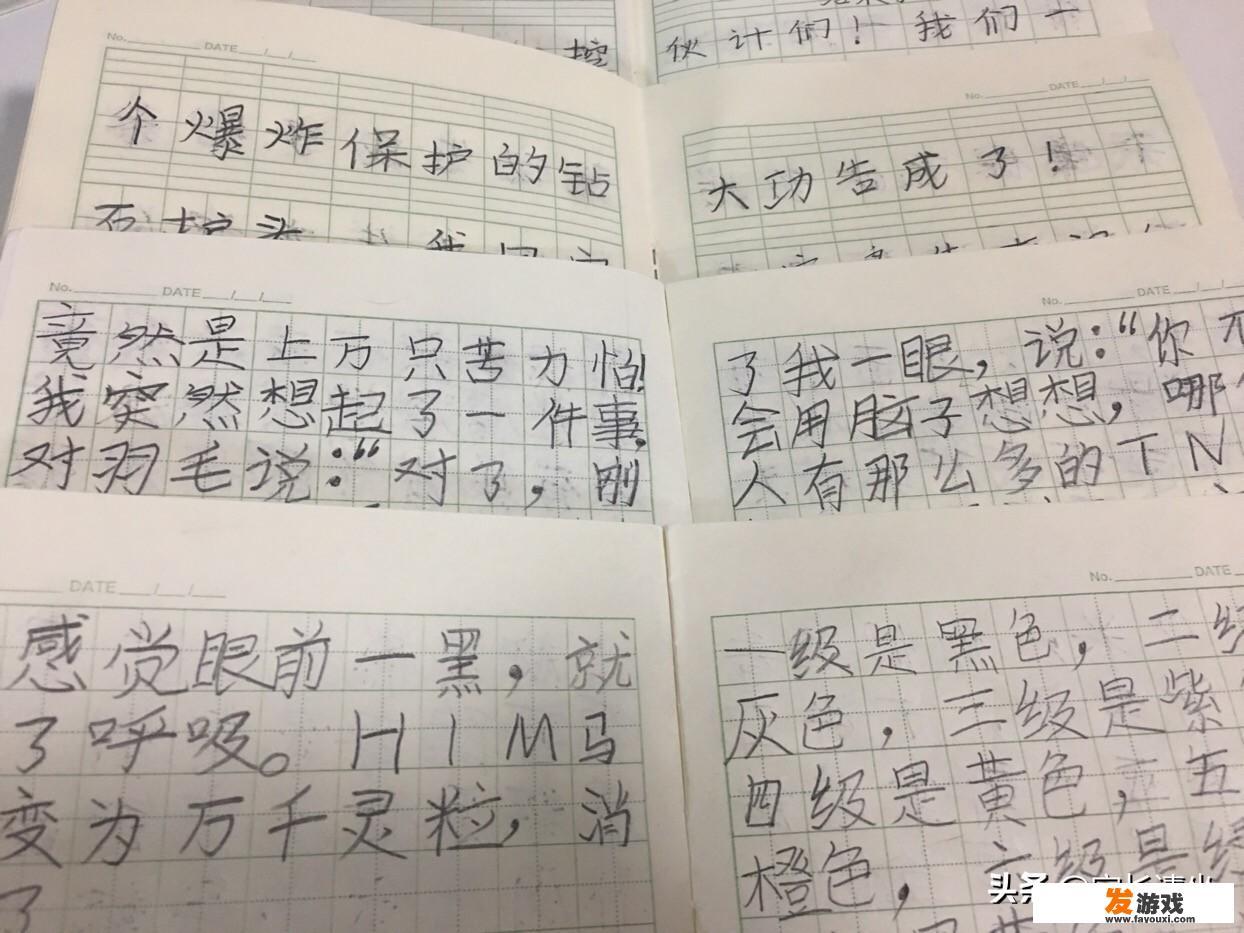 控
伙计们！我们一
No. DATE / /
个爆炸保护的钻
No. DATE / /
大功告成了！
No. DATE / /
竟然是上万只苦力怕！
我突然想起了一件事，
对羽毛说：“对了，刚
No. DATE / /
了我一眼，说：“你
会用脑子想想，哪
人有那么多的TN
DATE / /
感觉眼前一黑，就
了呼吸。HIM马
变为万千灵粒，消
了
No. DATE
一级是黑色，二级
灰色，三级是紫
四级是黄色，五
橙色，六级是
头条
发游戏
www.fayouxi.com